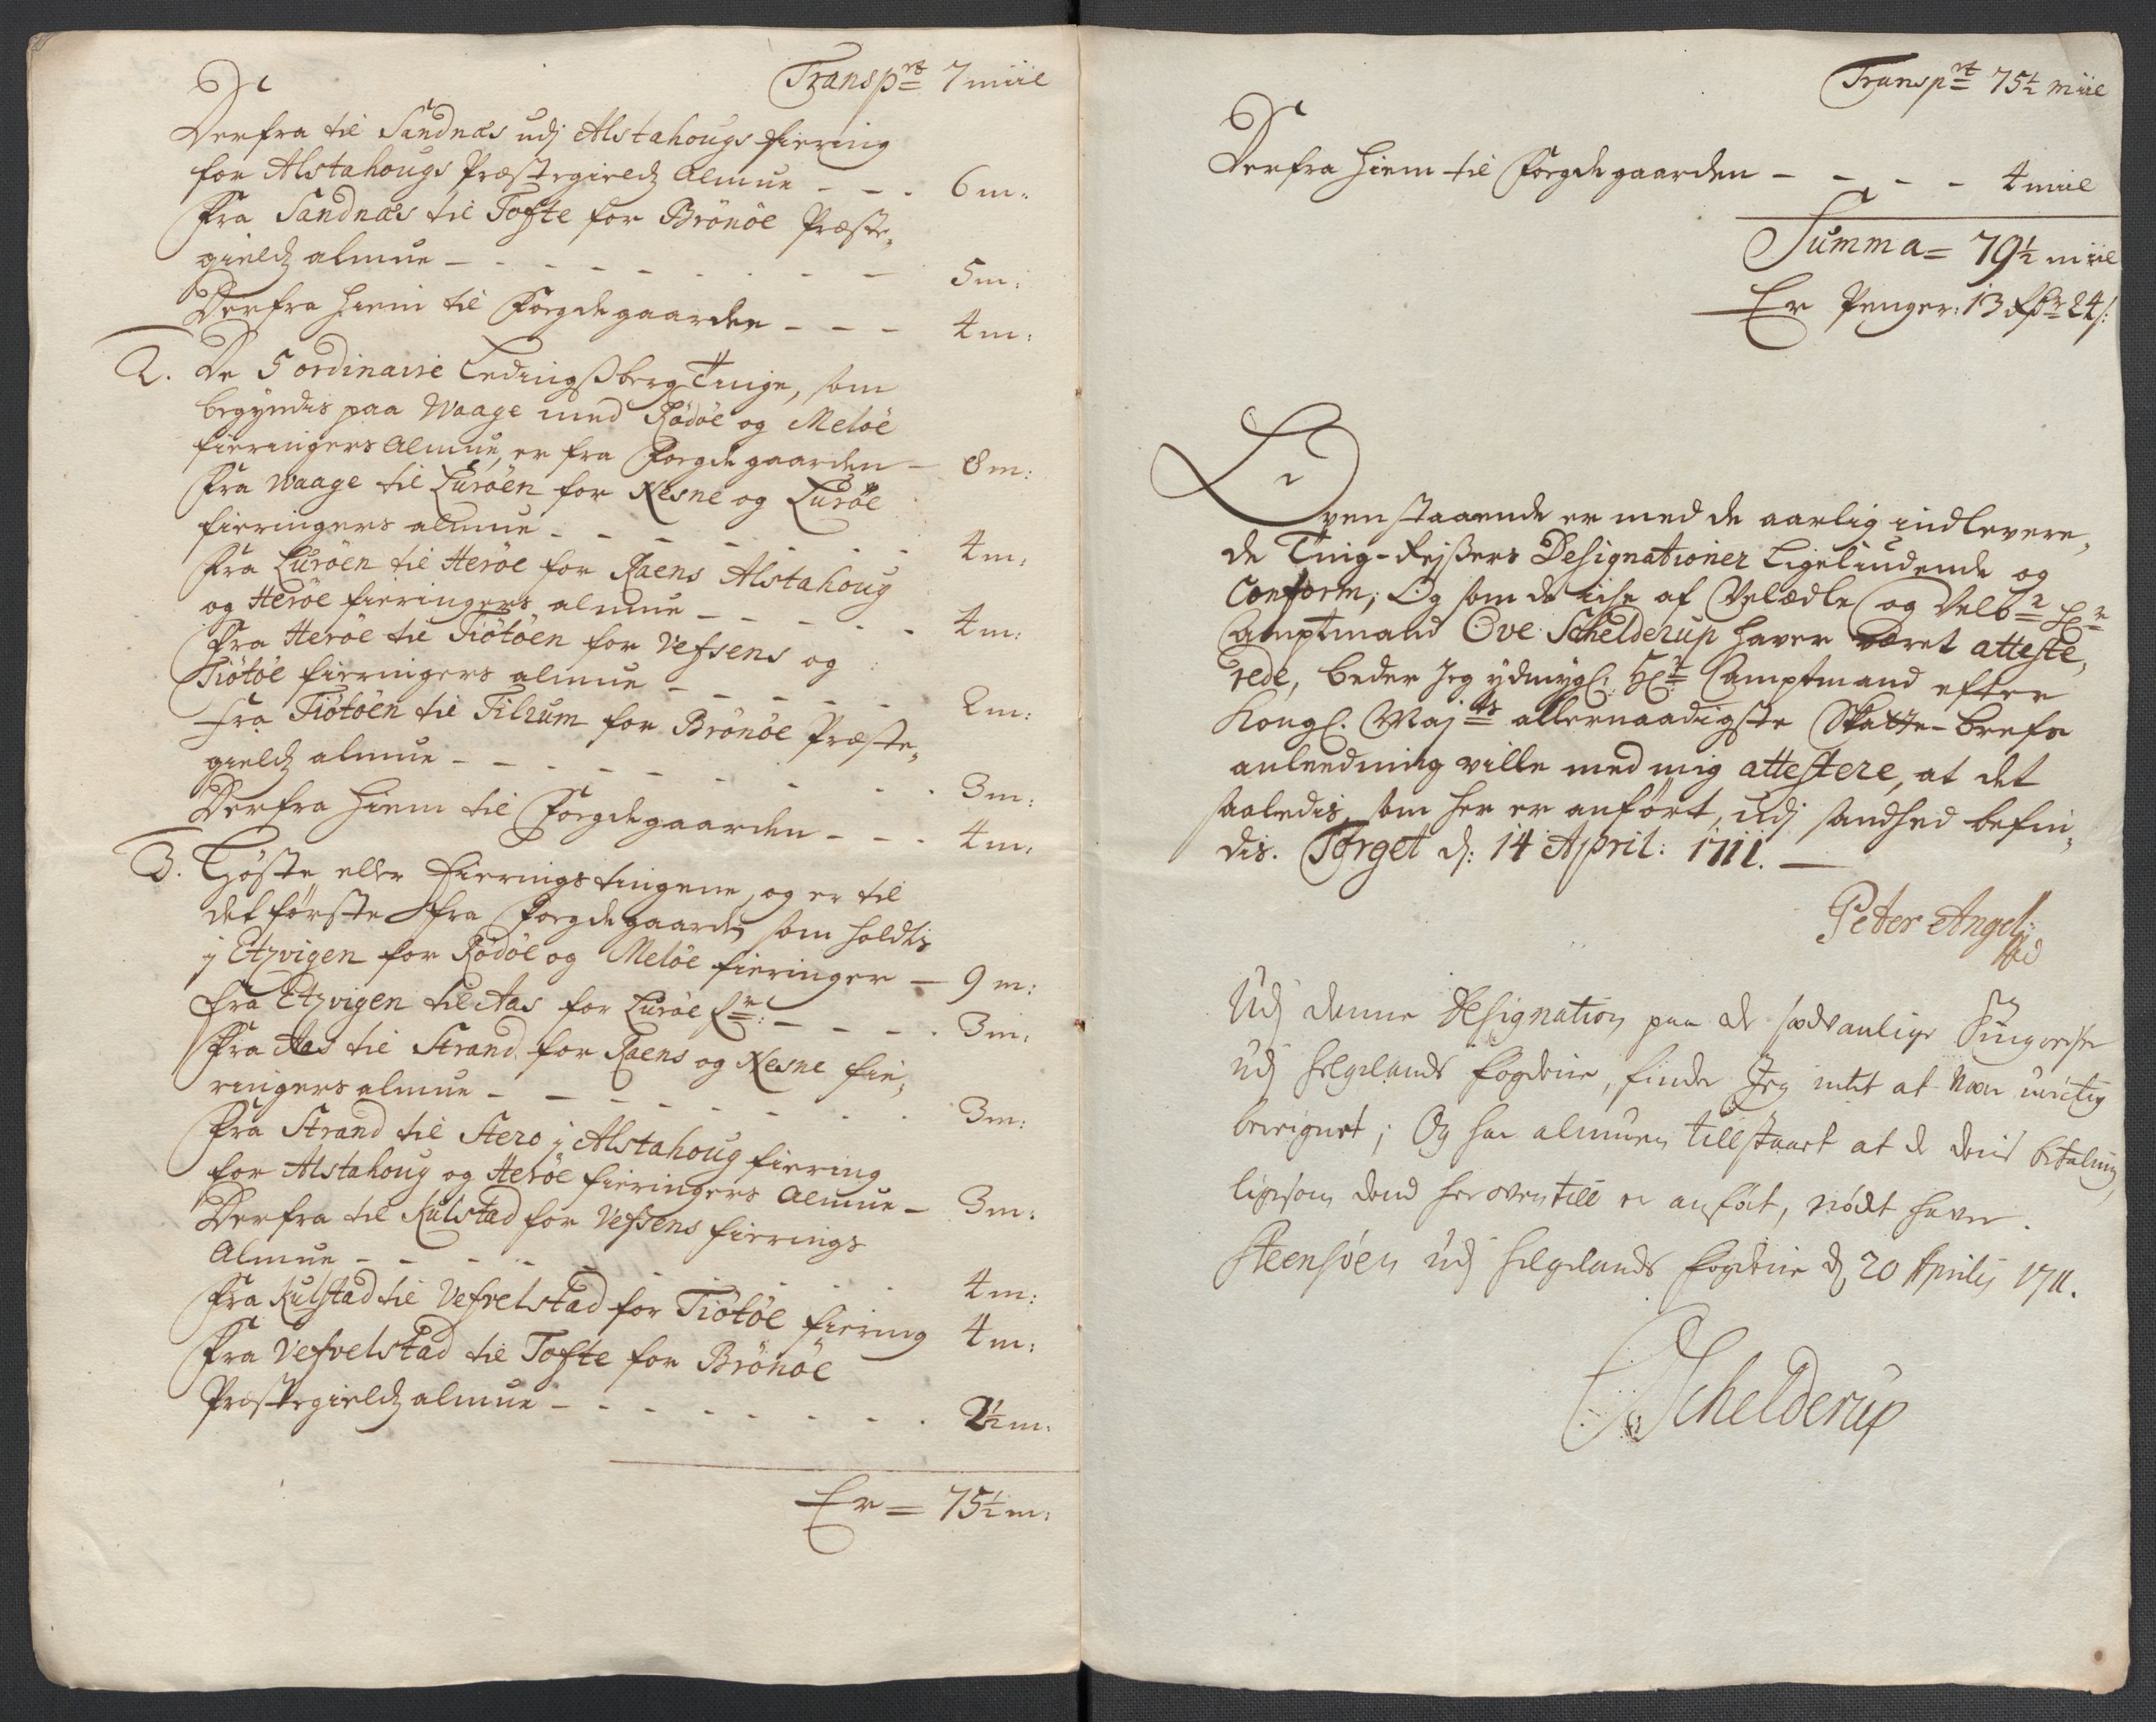 Transp<sup>rt</sup> 7 miil
Derfra til Sandnæs udj Alstahougs fiering
for Alstahougs Præstegieldz Almue - - - 6 m:
Fra Sandnæs til Tofte for Brönöe Præste-
gieldz almue - - - - - - - - - 5 m:
Derfra hiem til Foegdegaarden - - - 4 m:
2. De 5 ordinairie Ledingsberg Tinge, som
begyndis paa Waage med Rödöe og Melöe
fieringers Almue, er fra Foegdegaarden - 8 m:
Fra Waage til Luröen for Nesne og Luröe
fieringers almue - - - - - - - - 4 m:
Fra Luröen til Heröe for Raens Alstahoug
og Heröe fieringers almue - - - - - 4 m:
Fra Heröe til Tiötöen for Vefsens og
Tiötöe fieringers almue - - - - - 2 m:
Fra Tiötöen til Tilrum for Brönöe Præste-
gieldz almue - - - - - - - - - 3 m:
Derfra hiem til Foegdegaarden - - - 4 m:
3. Höste eller Fierings tingene, og er til
det förste fra Foegdegaarden som holdis
j Etzvigen for Rödöe og Melöe fieringer - 9 m:
Fra Etzvigen til Aas for Luröe f<sup>r</sup>: - - - - 3 m:
Fra Aas til Strand for Raens og Nesne fie-
ringers almue - - - - - - - - - 3 m:
Fra Strand til Stero j Alstahoug fiering
for Alstahoug og Heröe fieringers Almue - 3 m:
Derfra til Kulstad for Vefsens fierings
Almue - - - - - - - - - - 4 m:
Fra Kulstad til Vefvelstad for Tiötöe fiering 4 m:
Fra Vefvelstad til Tofte for Brönöe
Præstegieldz almue - - - - - - - - 2½ m:
Er = 75½ m:
Transp<sup>rt</sup> 75½ miil
Derfra hiem til Foegdegaarden - - - - 4 miil
Summa = 79½ miil
Er Penger: 13 Rdr 24 s:
Ovenstaaende er med de aarlig indlevere-
de Ting-Reisers Designationer Ligeliudende og
Conform; Og som de iche af Velædle og Velb<sup>r</sup> H<sup>r</sup>
Amptmand Ove Schelderup haver været atteste-
rede, beder Jeg ydmygl: H<sup>r</sup> Amptmand efter
Kongl. Maj<sup>ts</sup> allernaadigste Skatte-brefs
anleedning ville med mig attestere, at det
saaledis, som her er anfört, udj sandhed befin-
dis. Torget d: 14 April: 1711.
Peter Angel
Udj denne Designation paa de sædvanlige Tingreiser
udj Helgelands fogderie, finder Jeg intet at være urigtig
beregnet; Og har almuen tillstaaet at de deris betaling,
ligesom dend her oven till er anfört, nödt haver.
Steensöen udj Helgelands fogderie d. 20 Aprilis 1711.
Schelderup